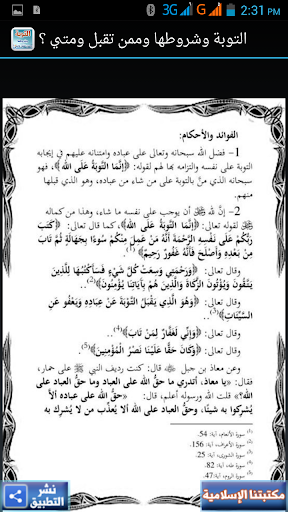 3G G 2:31 PM
التوبة وشروطها وممن تقبل ومتي ؟
الفوائد والأحكام:
1- فضل الله سبحانه وتعالى على عباده وامتنانه عليهم في إيجابه
التوبة على نفسه والتزامه بها لهم لقوله: ﴿إِنَّمَا التَّوْبَةُ عَلَى اللَّهِ﴾، فهو
سبحانه الذي منَّ بالتوبة على من شاء من عباده، وهو الذي قبلها
منهم.
2- إنَّ لله ﷻ أن يوجب على نفسه ما شاء، وهذا من كماله
لقوله: ﴿إِنَّمَا التَّوْبَةُ عَلَى اللَّهِ﴾، كما قال تعالى: ﴿كَتَبَ
رَبُّكُمْ عَلَى نَفْسِهِ الرَّحْمَةَ أَنَّهُ مَنْ عَمِلَ مِنْكُمْ سُوءًا بِجَهَالَةٍ ثُمَّ تَابَ
مِنْ بَعْدِهِ وَأَصْلَحَ فَأَنَّهُ غَفُورٌ رَحِيمٌ﴾(1).
وقال تعالى: ﴿وَرَحْمَتِي وَسِعَتْ كُلَّ شَيْءٍ فَسَأَكْتُبُهَا لِلَّذِينَ
يَتَّقُونَ وَيُؤْتُونَ الزَّكَاةَ وَالَّذِينَ هُمْ بِآيَاتِنَا يُؤْمِنُونَ﴾(2).
وقال تعالى: ﴿وَهُوَ الَّذِي يَقْبَلُ التَّوْبَةَ عَنْ عِبَادِهِ وَيَعْفُو عَنِ
السَّيِّئَاتِ﴾(3).
وقال تعالى: ﴿وَإِنِّي لَغَفَّارٌ لِمَنْ تَابَ﴾(4).
وقال تعالى: ﴿وَكَانَ حَقًّا عَلَيْنَا نَصْرُ الْمُؤْمِنِينَ﴾(5).
وعن معاذ بن جبل قال: كنت رديف النبي ﷺ على حمار،
فقال: «يا معاذ، أتدري ما حق الله على العباد وما حق العباد على
الله؟» قلت الله ورسوله أعلم، قال: «حق الله على عباده ألاَّ
يُشركوا به شيئًا، وحقُّ العباد على الله ألا يُعذّب من لا يُشرك به
(1) سورة الأنعام، آية: 54.
(2) سورة الأعراف، آية: 156.
(3) سورة الشورى، آية: 25.
(4) سورة طه، آية: 82.
(5) سورة الروم، آية: 47.
نشر
التطبيق
مكتبتنا الإسلامية